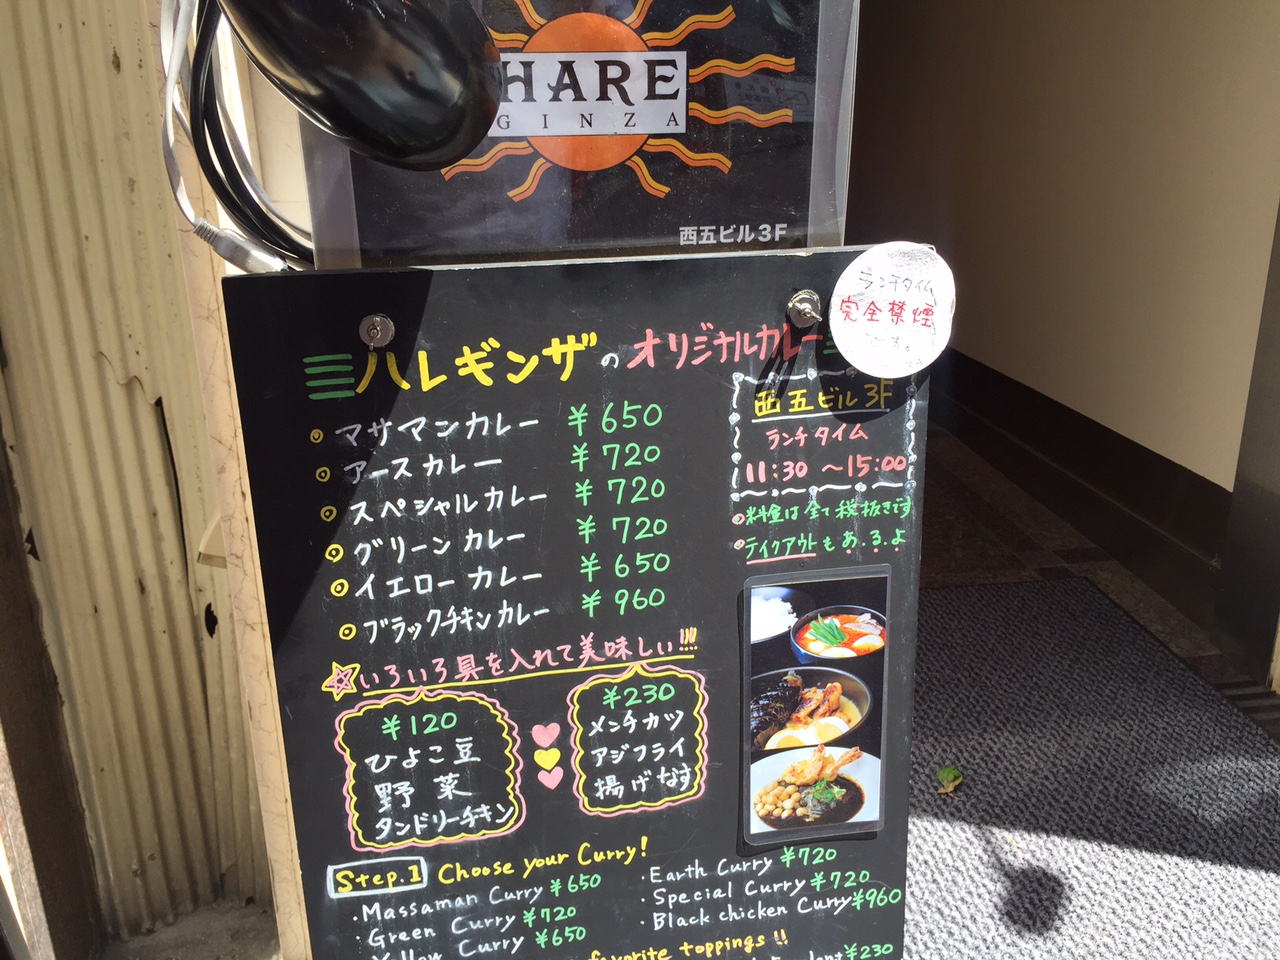 HARE
GINZA
西五ビル3F
ランチタイム
完全禁煙
です。
ハレギンザのオリジナルカレー
マサマンカレー ¥650
アースカレー ¥720
スペシャルカレー ¥720
グリーンカレー ¥720
イエローカレー ¥650
ブラックチキンカレー ¥960
西五ビル3F
ランチタイム
11:30 〜15:00
料金は全て税抜きです
テイクアウトもあ.る.よ
いろいろ具を入れて美味しい!!!
¥120
ひよこ豆
野菜
タンドリーチキン
¥230
メンチカツ
アジフライ
揚げなす
Step.1 Choose your Curry!
・Massaman Curry ¥650
・Green Curry ¥720
Yellow Curry ¥650
・Earth Curry ¥720
・Special Curry ¥720
・Black chicken Curry ¥960
favorite toppings!!
¥230